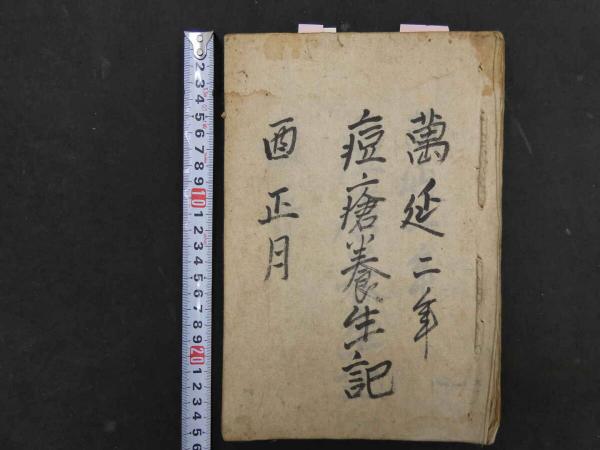 萬延二年
痘瘡養生記
酉正月
2
3
4
5
6
7
8
9
10
1
2
3
4
5
6
7
8
9
20
1
2
3
4
5
6